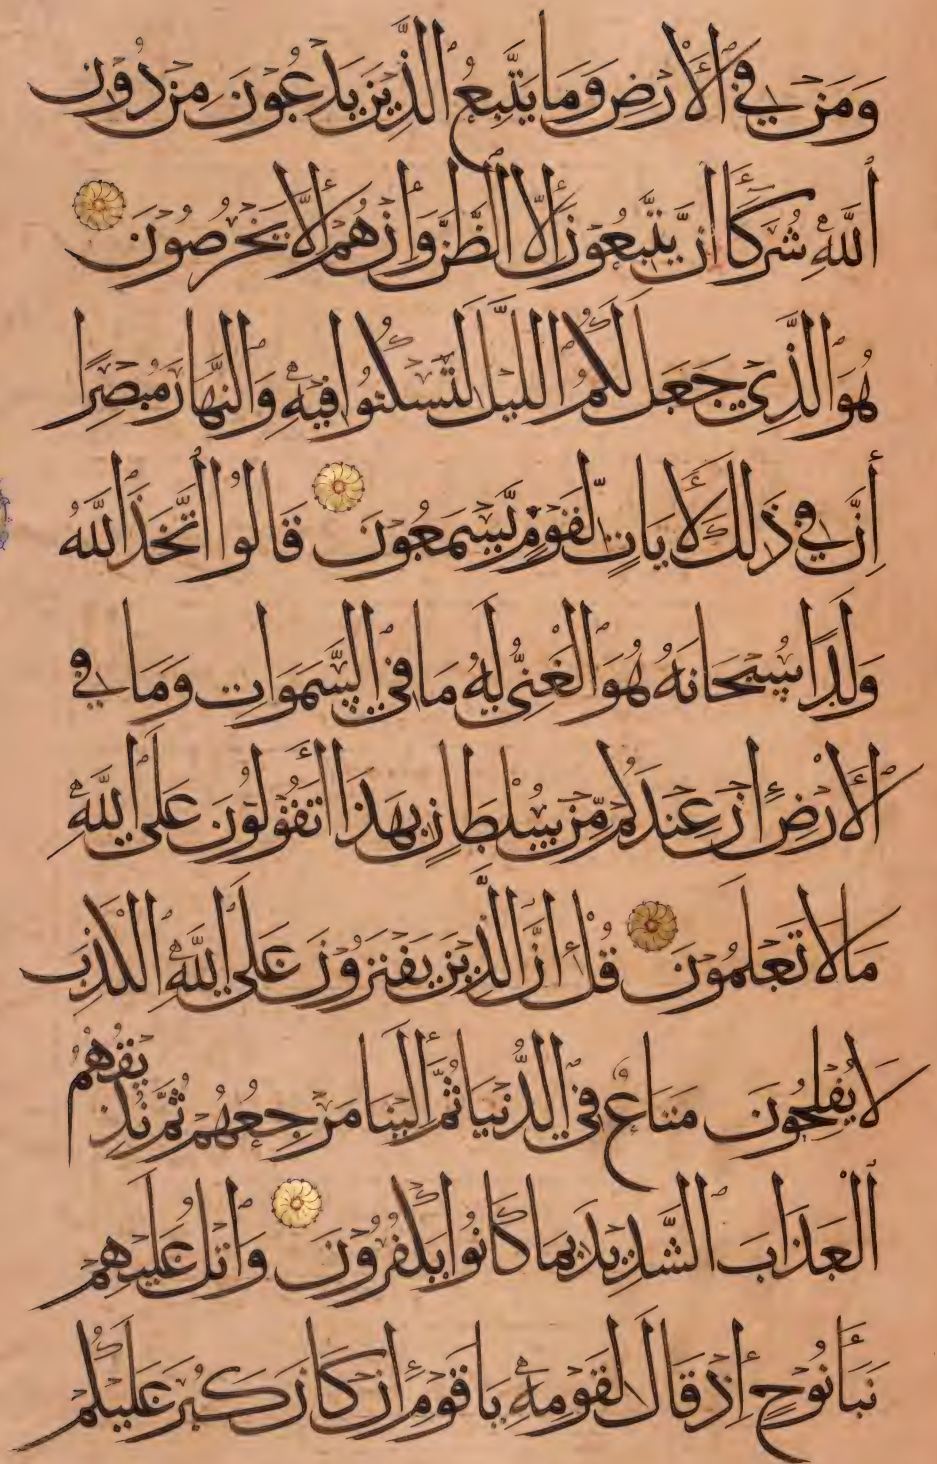 وَمَنْ فِي ٱلْأَرْضِ وَمَا يَتَّبِعُ الَّذِينَ يَدْعُونَ مِنْ دُونِ
ٱللَّهِ شُرَكَاءَ اِنْ يَتَّبِعُونَ إِلَّا الظَّنَّ وَإِنْ هُمْ إِلَّا يَخْرُصُونَ
هُوَ الَّذِي جَعَلَ لَكُمُ اللَّيْلَ لِتَسْكُنُوا فِيهِ وَالنَّهَارَ مُبْصِرًا
إِنَّ فِي ذَلِكَ لَأَيَاتٍ لِّقَوْمٍ يَّسْمَعُونَ قَالُوا اتَّخَذَ اللَّهُ
وَلَدًا سُبْحَانَهُ هُوَ الْغَنِيُّ لَهُ مَا فِي السَّمَوَاتِ وَمَا فِي
ٱلْأَرْضِ إِنْ عِنْدَكُمْ مِّنْ سُلْطَانٍ بِهَذَا أَتَقُولُونَ عَلَى اللَّهِ
مَا لَا تَعْلَمُونَ قُلْ إِنَّ الَّذِينَ يَفْتَرُونَ عَلَى اللَّهِ الْكَذِبَ
لَا يُفْلِحُونَ مَتَاعٌ فِي الدُّنْيَا ثُمَّ إِلَيْنَا مَرْجِعُهُمْ ثُمَّ نُذِيقُهُمُ
ٱلْعَذَابَ الشَّدِيدَ بِمَا كَانُوا يَكْفُرُونَ وَاتْلُ عَلَيْهِمْ
نَبَأَ نُوحٍ إِذْ قَالَ لِقَوْمِهِ يَا قَوْمِ إِنْ كَانَ كَبُرَ عَلَيْكُمْ